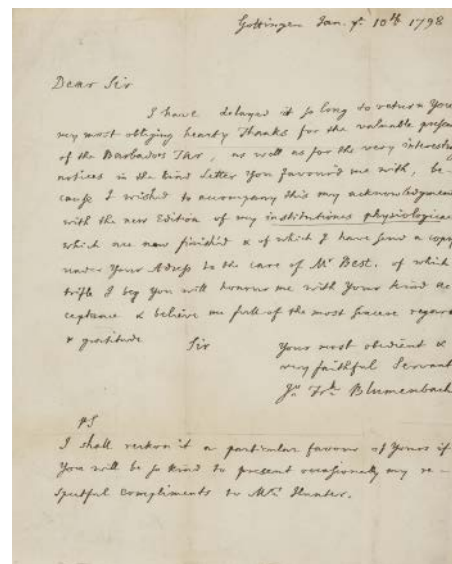 Gottingen Jan. yᵉ 10th 1798
Dear Sir
I have delayed it so long to return You
my most obliging hearty Thanks for the valuable presen
of the Barbados Tar, as well as for the very interestin
notices in the kind Letter You favour'd me with, be-
cause I wished to accompany this my acknowledgment
with the new Edition of my institutiones physiologicae
which are now finished & of which I have send a copy
under Your Adress to the care of Mr Best. of which
trifle I beg You will honour me with Your kind ac
ceptance & believe me full of the most sincere regard
& gratitude Sir Your most obedient &
very faithful Servant
Jn Frk Blumenbach
PS
I shall reckon it a particular favour of Yours if
You will be so kind to present occasionally my re-
spectful compliments to Mrs Hunter.